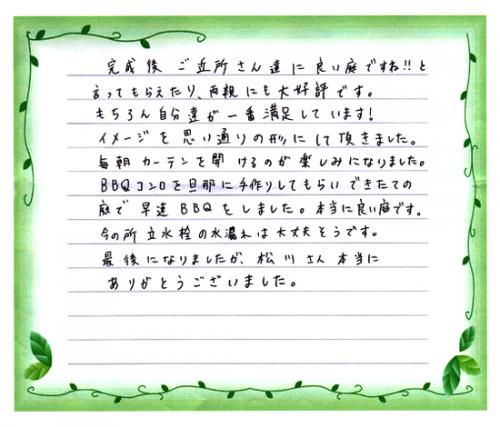 完成後ご近所さん達に良い庭ですね!!と
言ってもらえたり、両親にも大好評です。
もちろん自分達が一番満足しています!
イメージを思い通りの形にして頂きました。
毎朝カーテンを開けるのが楽しみになりました。
BBQコンロを旦那に手作りしてもらいできたての
庭で早速BBQをしました。本当に良い庭です。
今の所立水栓の水漏れは大丈夫そうです。
最後になりましたが、松川さん本当に
ありがとうございました。